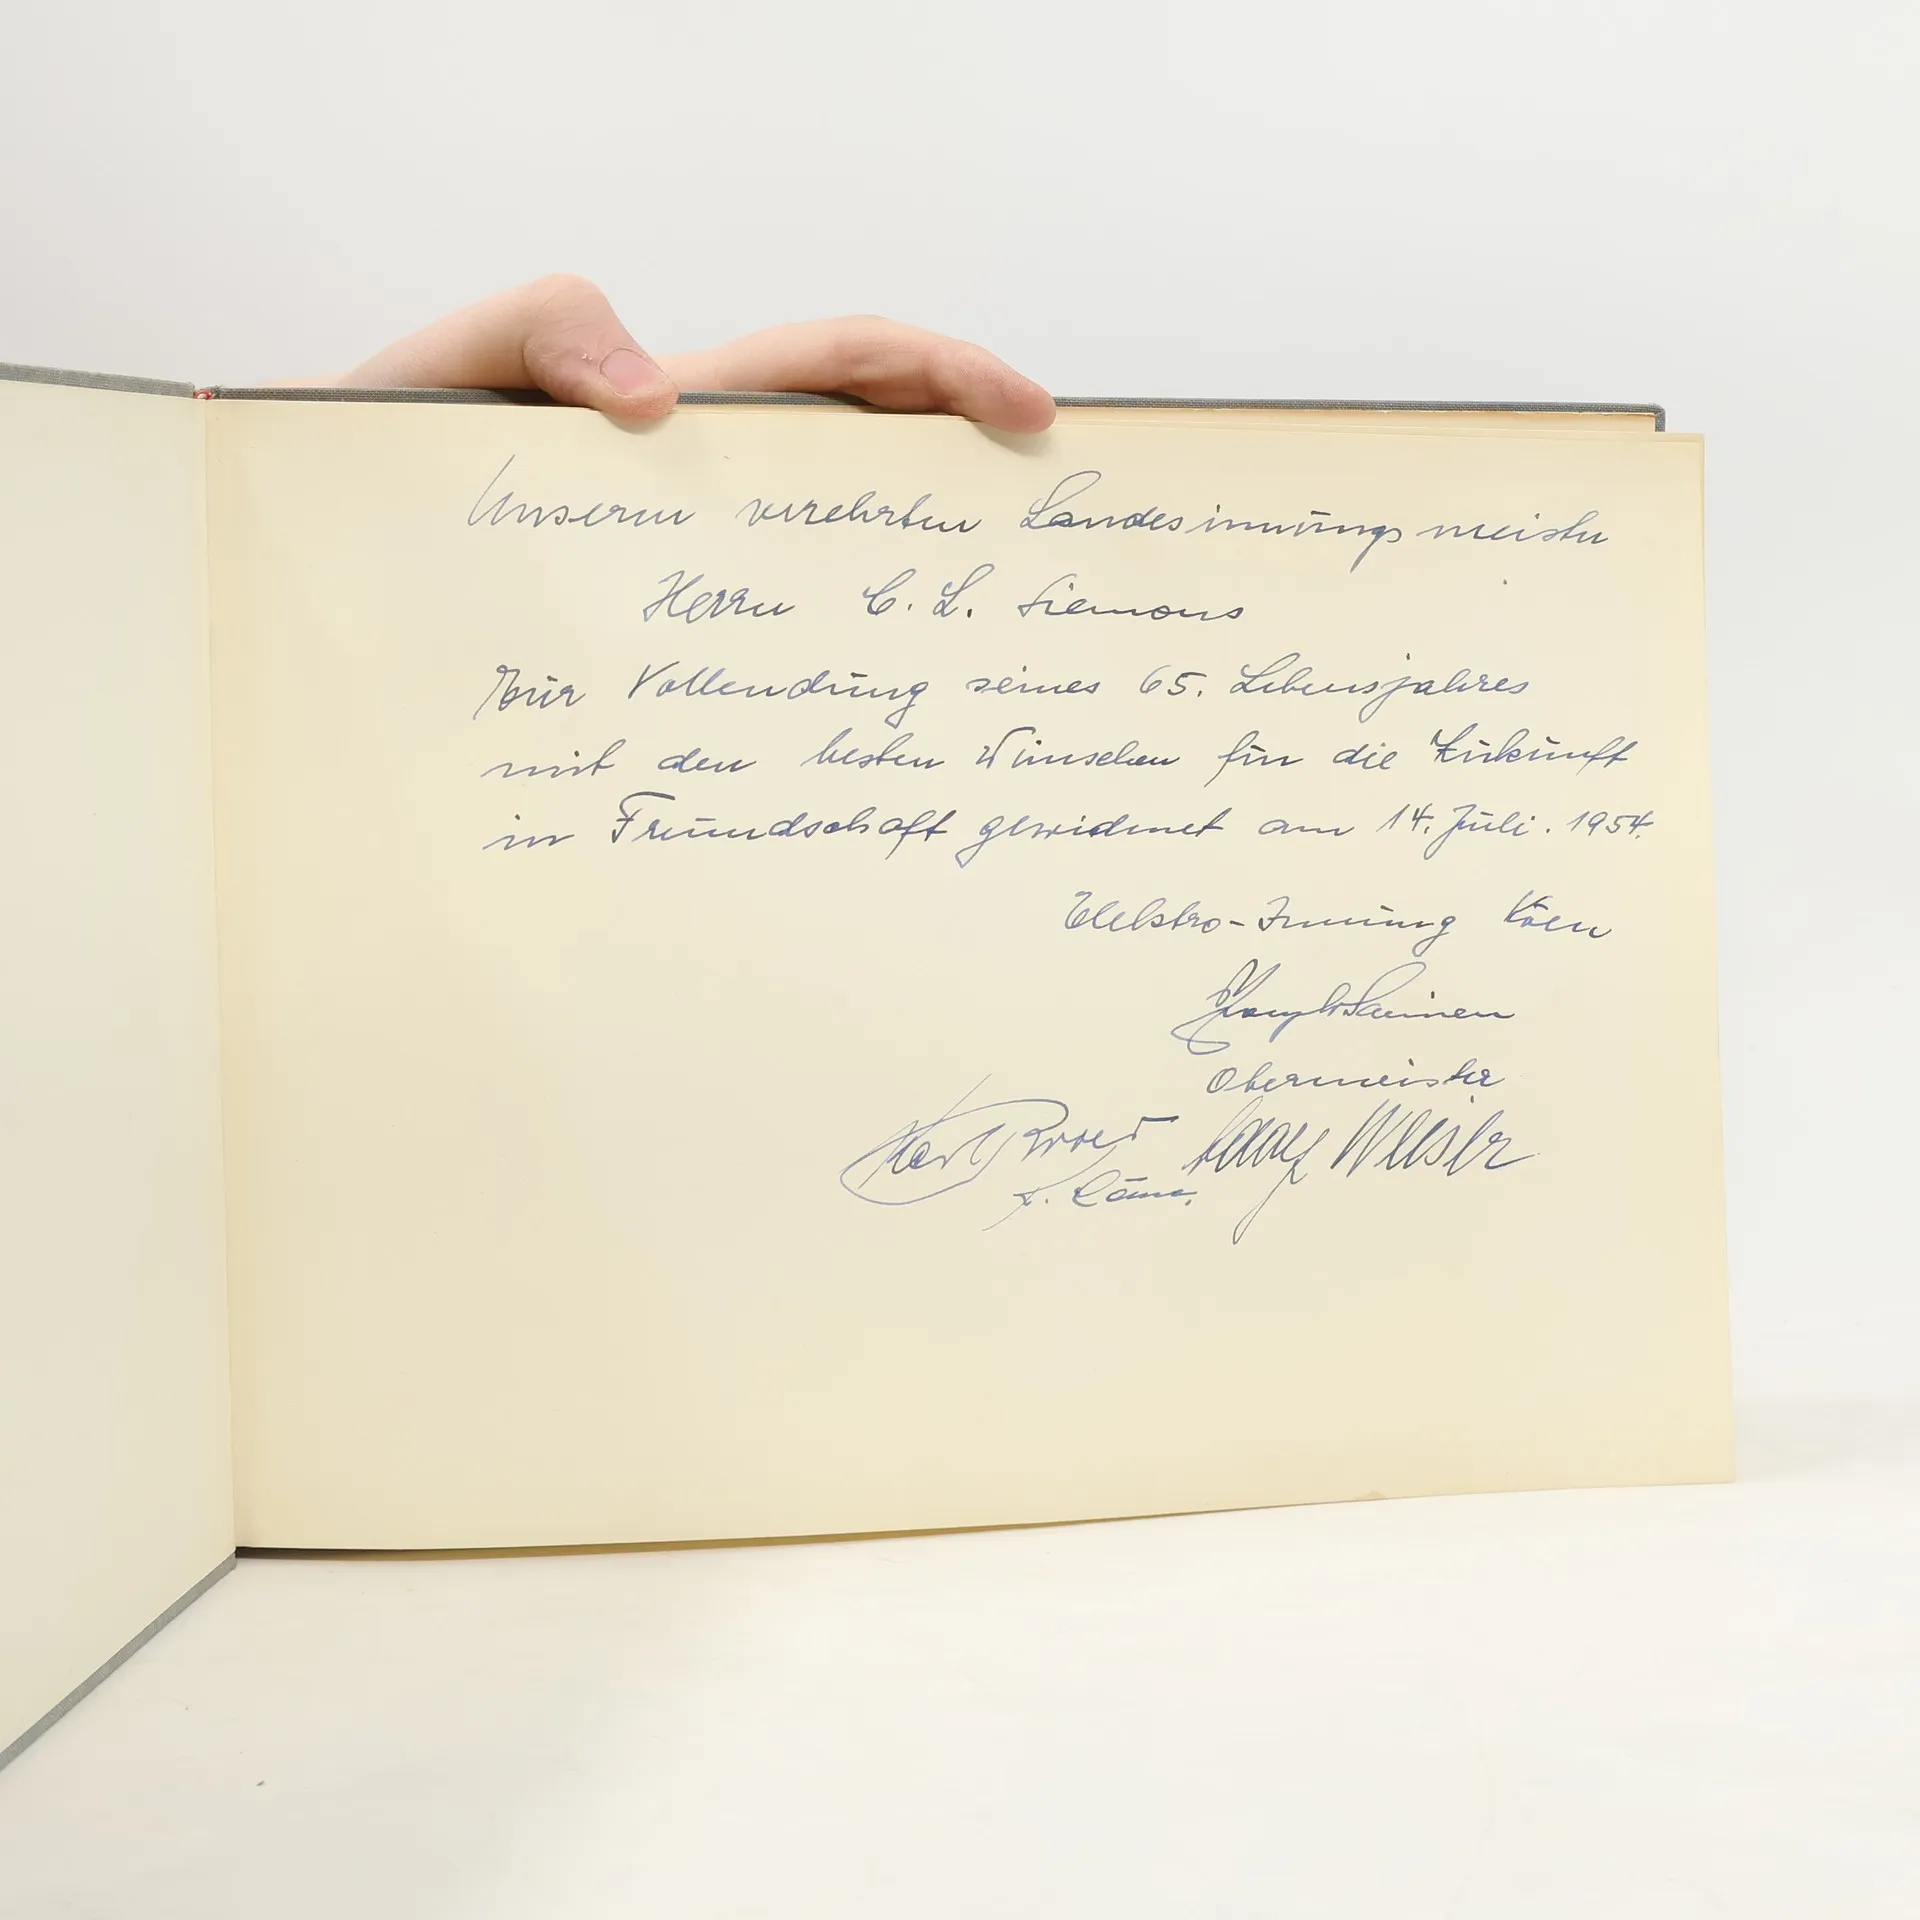 Unserm verehrten Landesinnungsmeister
Herrn C. L. Siemons
Zur Vollendung seines 65. Lebensjahres
mit den besten Wünschen für die Zukunft
in Freundschaft gewidmet am 14. Juli. 1954.
Elektro-Innung Köln
Obermeister